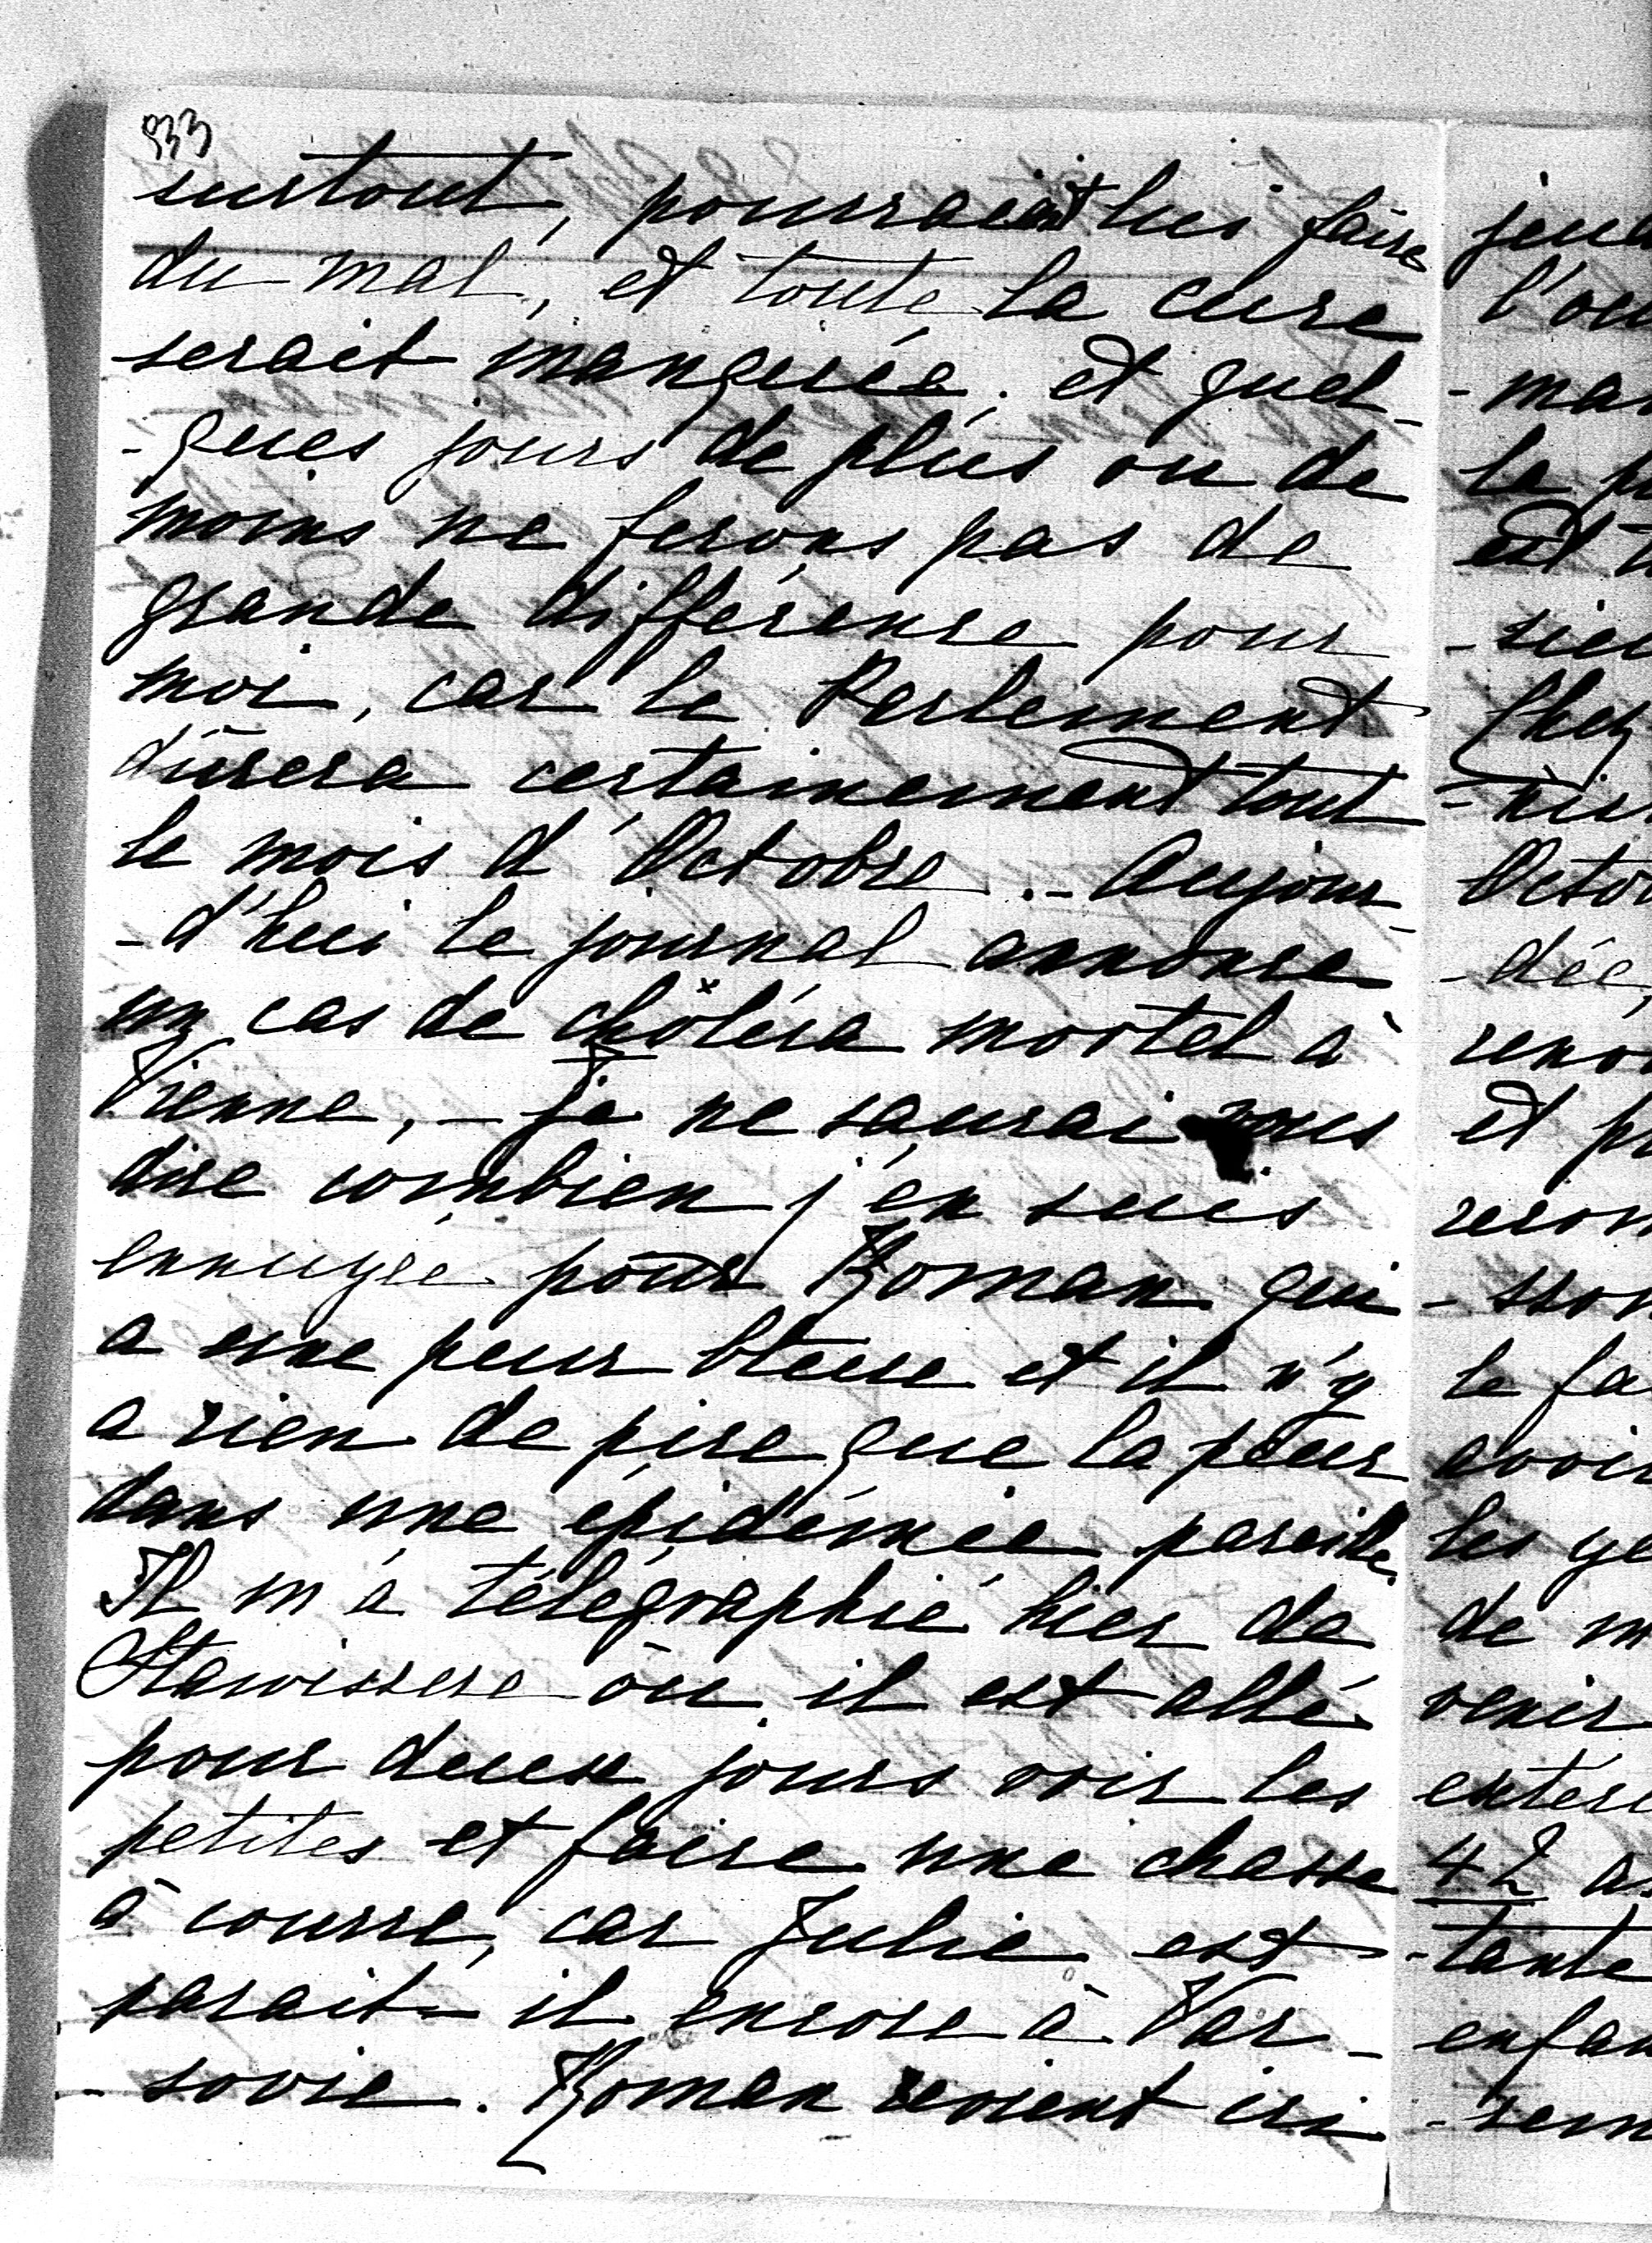 933
surtout, pourraient lui faire
du mal, et toute la cure
serait manquée. et quel-
-ques jours de plus ou de
moins ne ferons pas de
grande différence pour
moi, car le Parlement
durera certainement tout
le mois d'Octobre.- Aujour-
-d'hui le journal annonce
un cas de choléra mortel à
Vienne,- je ne saurai vous
dire combien j'en suis
ennuyée pour Roman qui
a une peur bleue et il n'y
a rien de pire que la peur
dans une épidémie pareille.
Il m'a télégraphié hier de
où il est allé
pour deux jours voir les
petites et faire une chasse
à courre, car Julie est
parait-il encore à Var-
-sovie. Roman revient ici